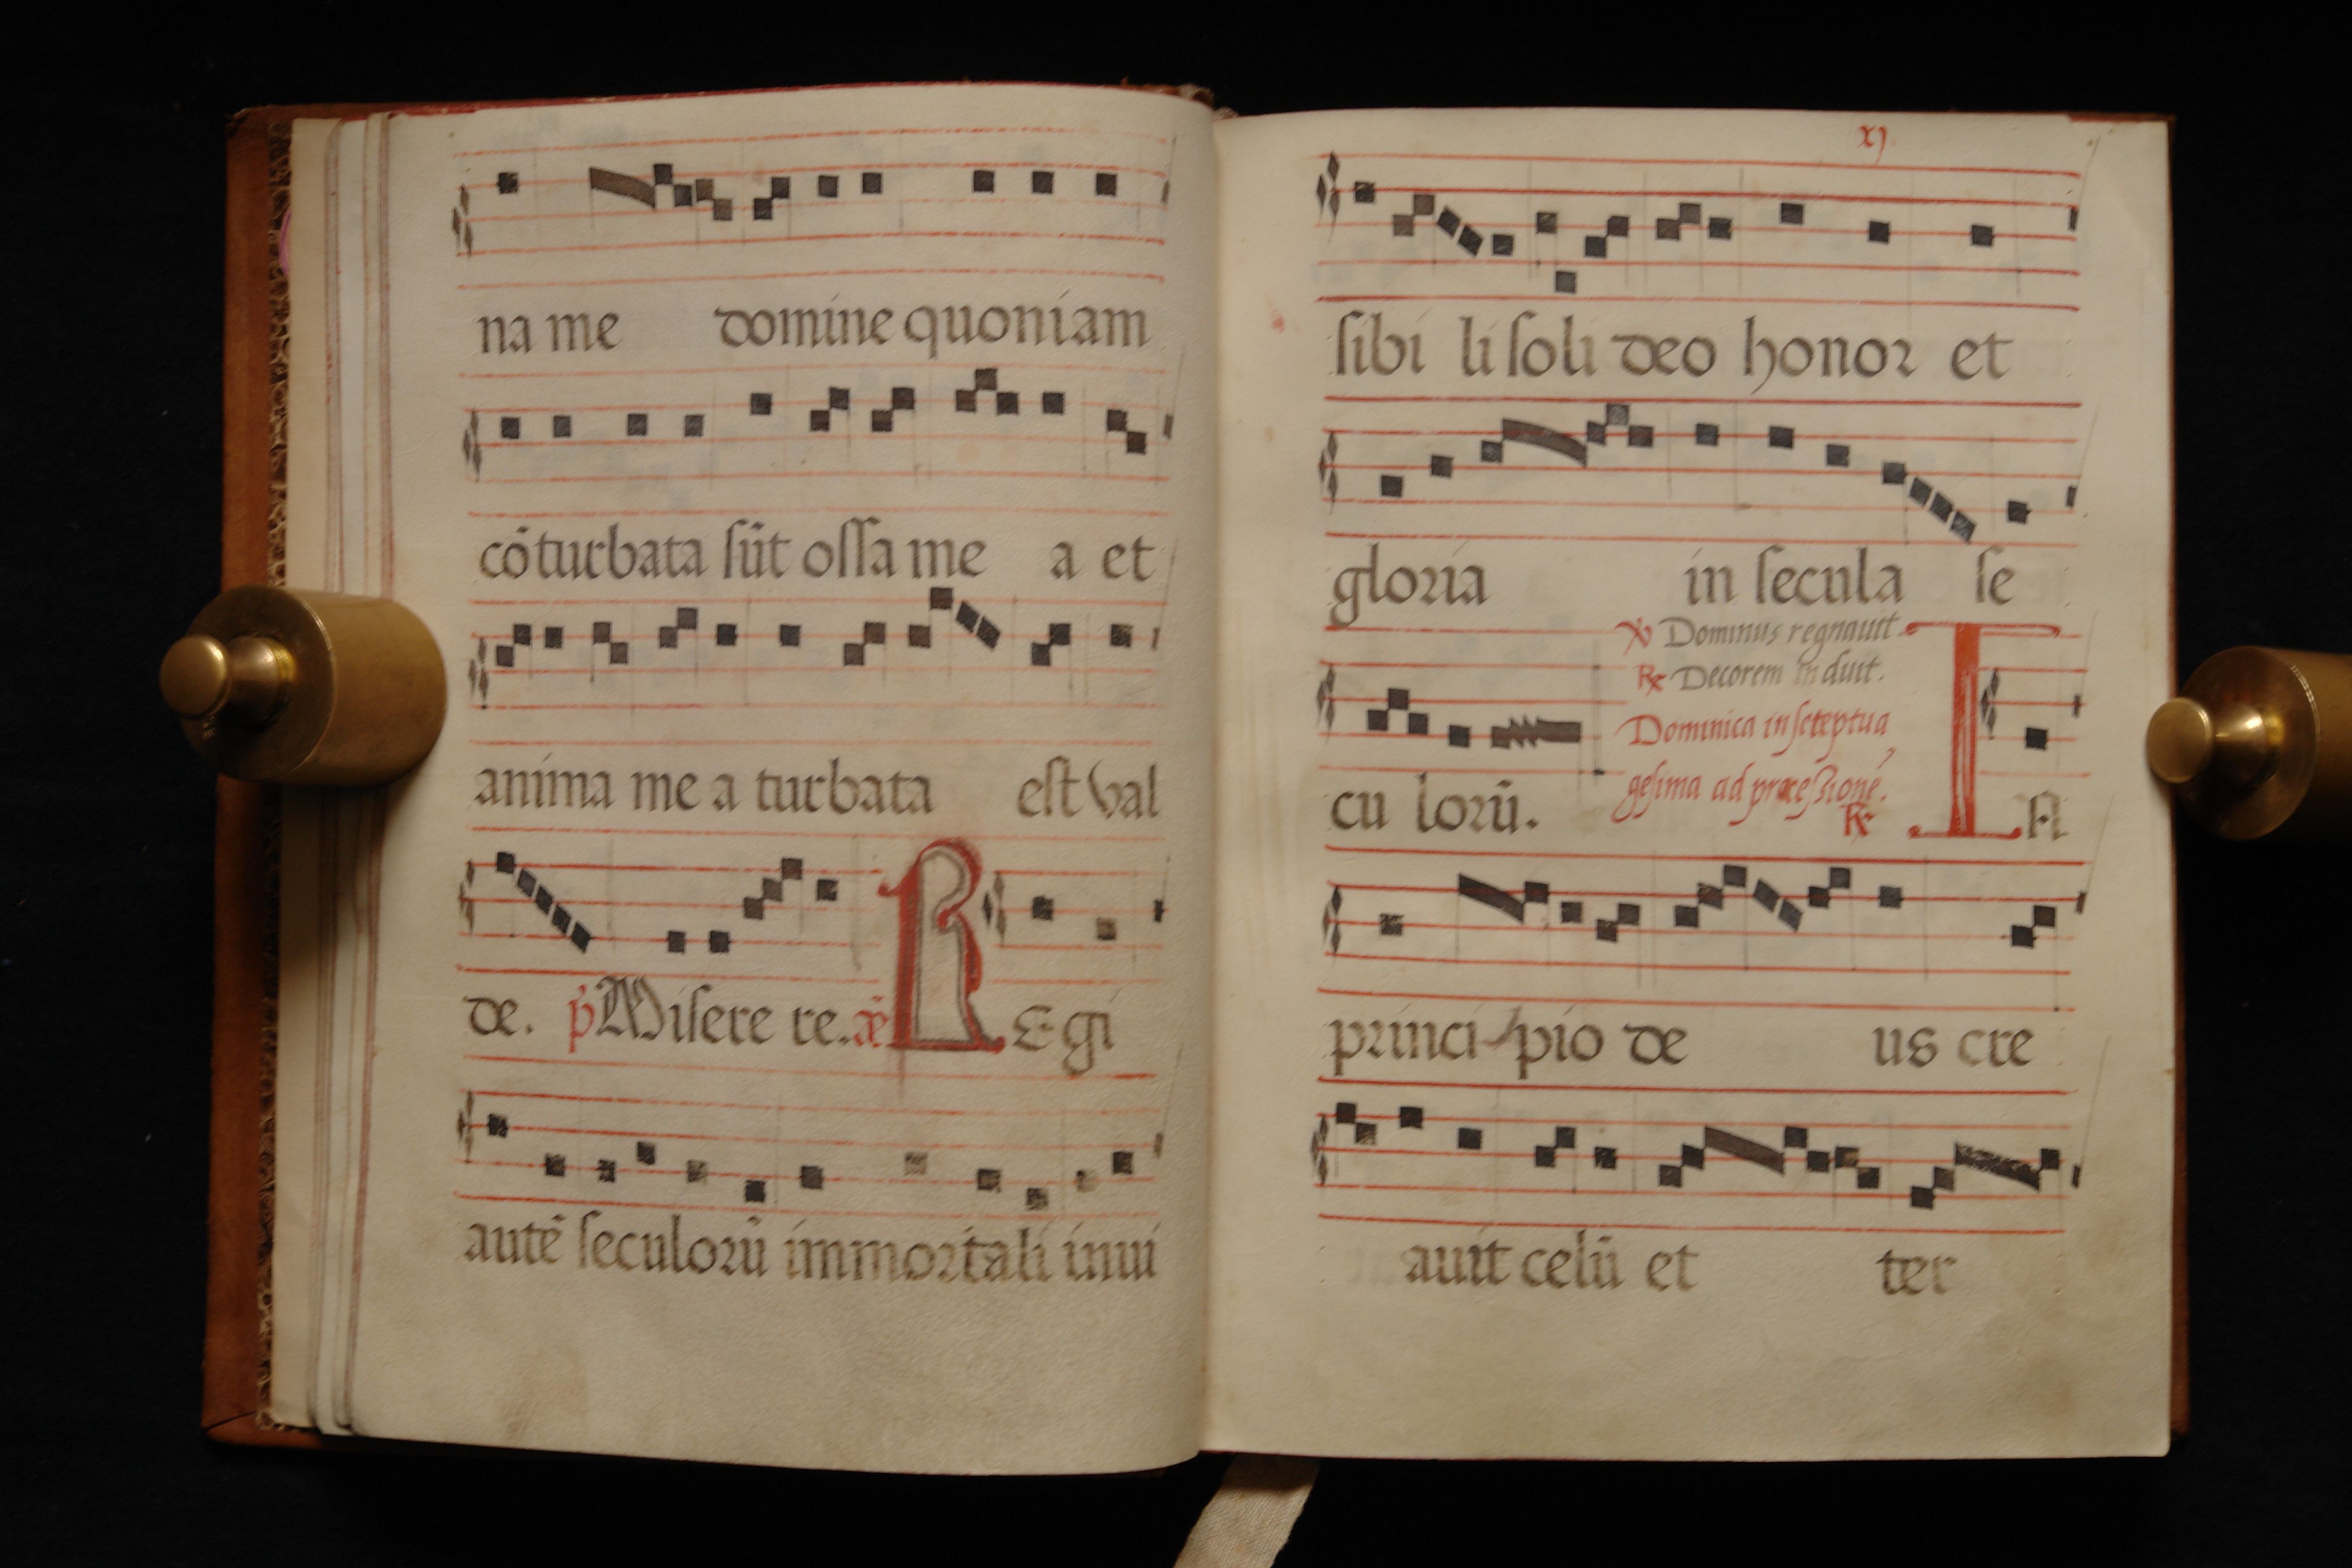 na me domine quoniam
cōturbata sūt ossa me a et
anima me a turbata est val
de. p̄ Misere re. añ R Egi
autē seculorū immortali invi
xj
sibi li soli deo honor et
gloria in secula se
℣ Dominus regnauit.
℟ Decorem induit.
Dominica in septua
gesima ad processionē.
℟
cu lorū. I N
princi-pio de us cre
auit celū et ter